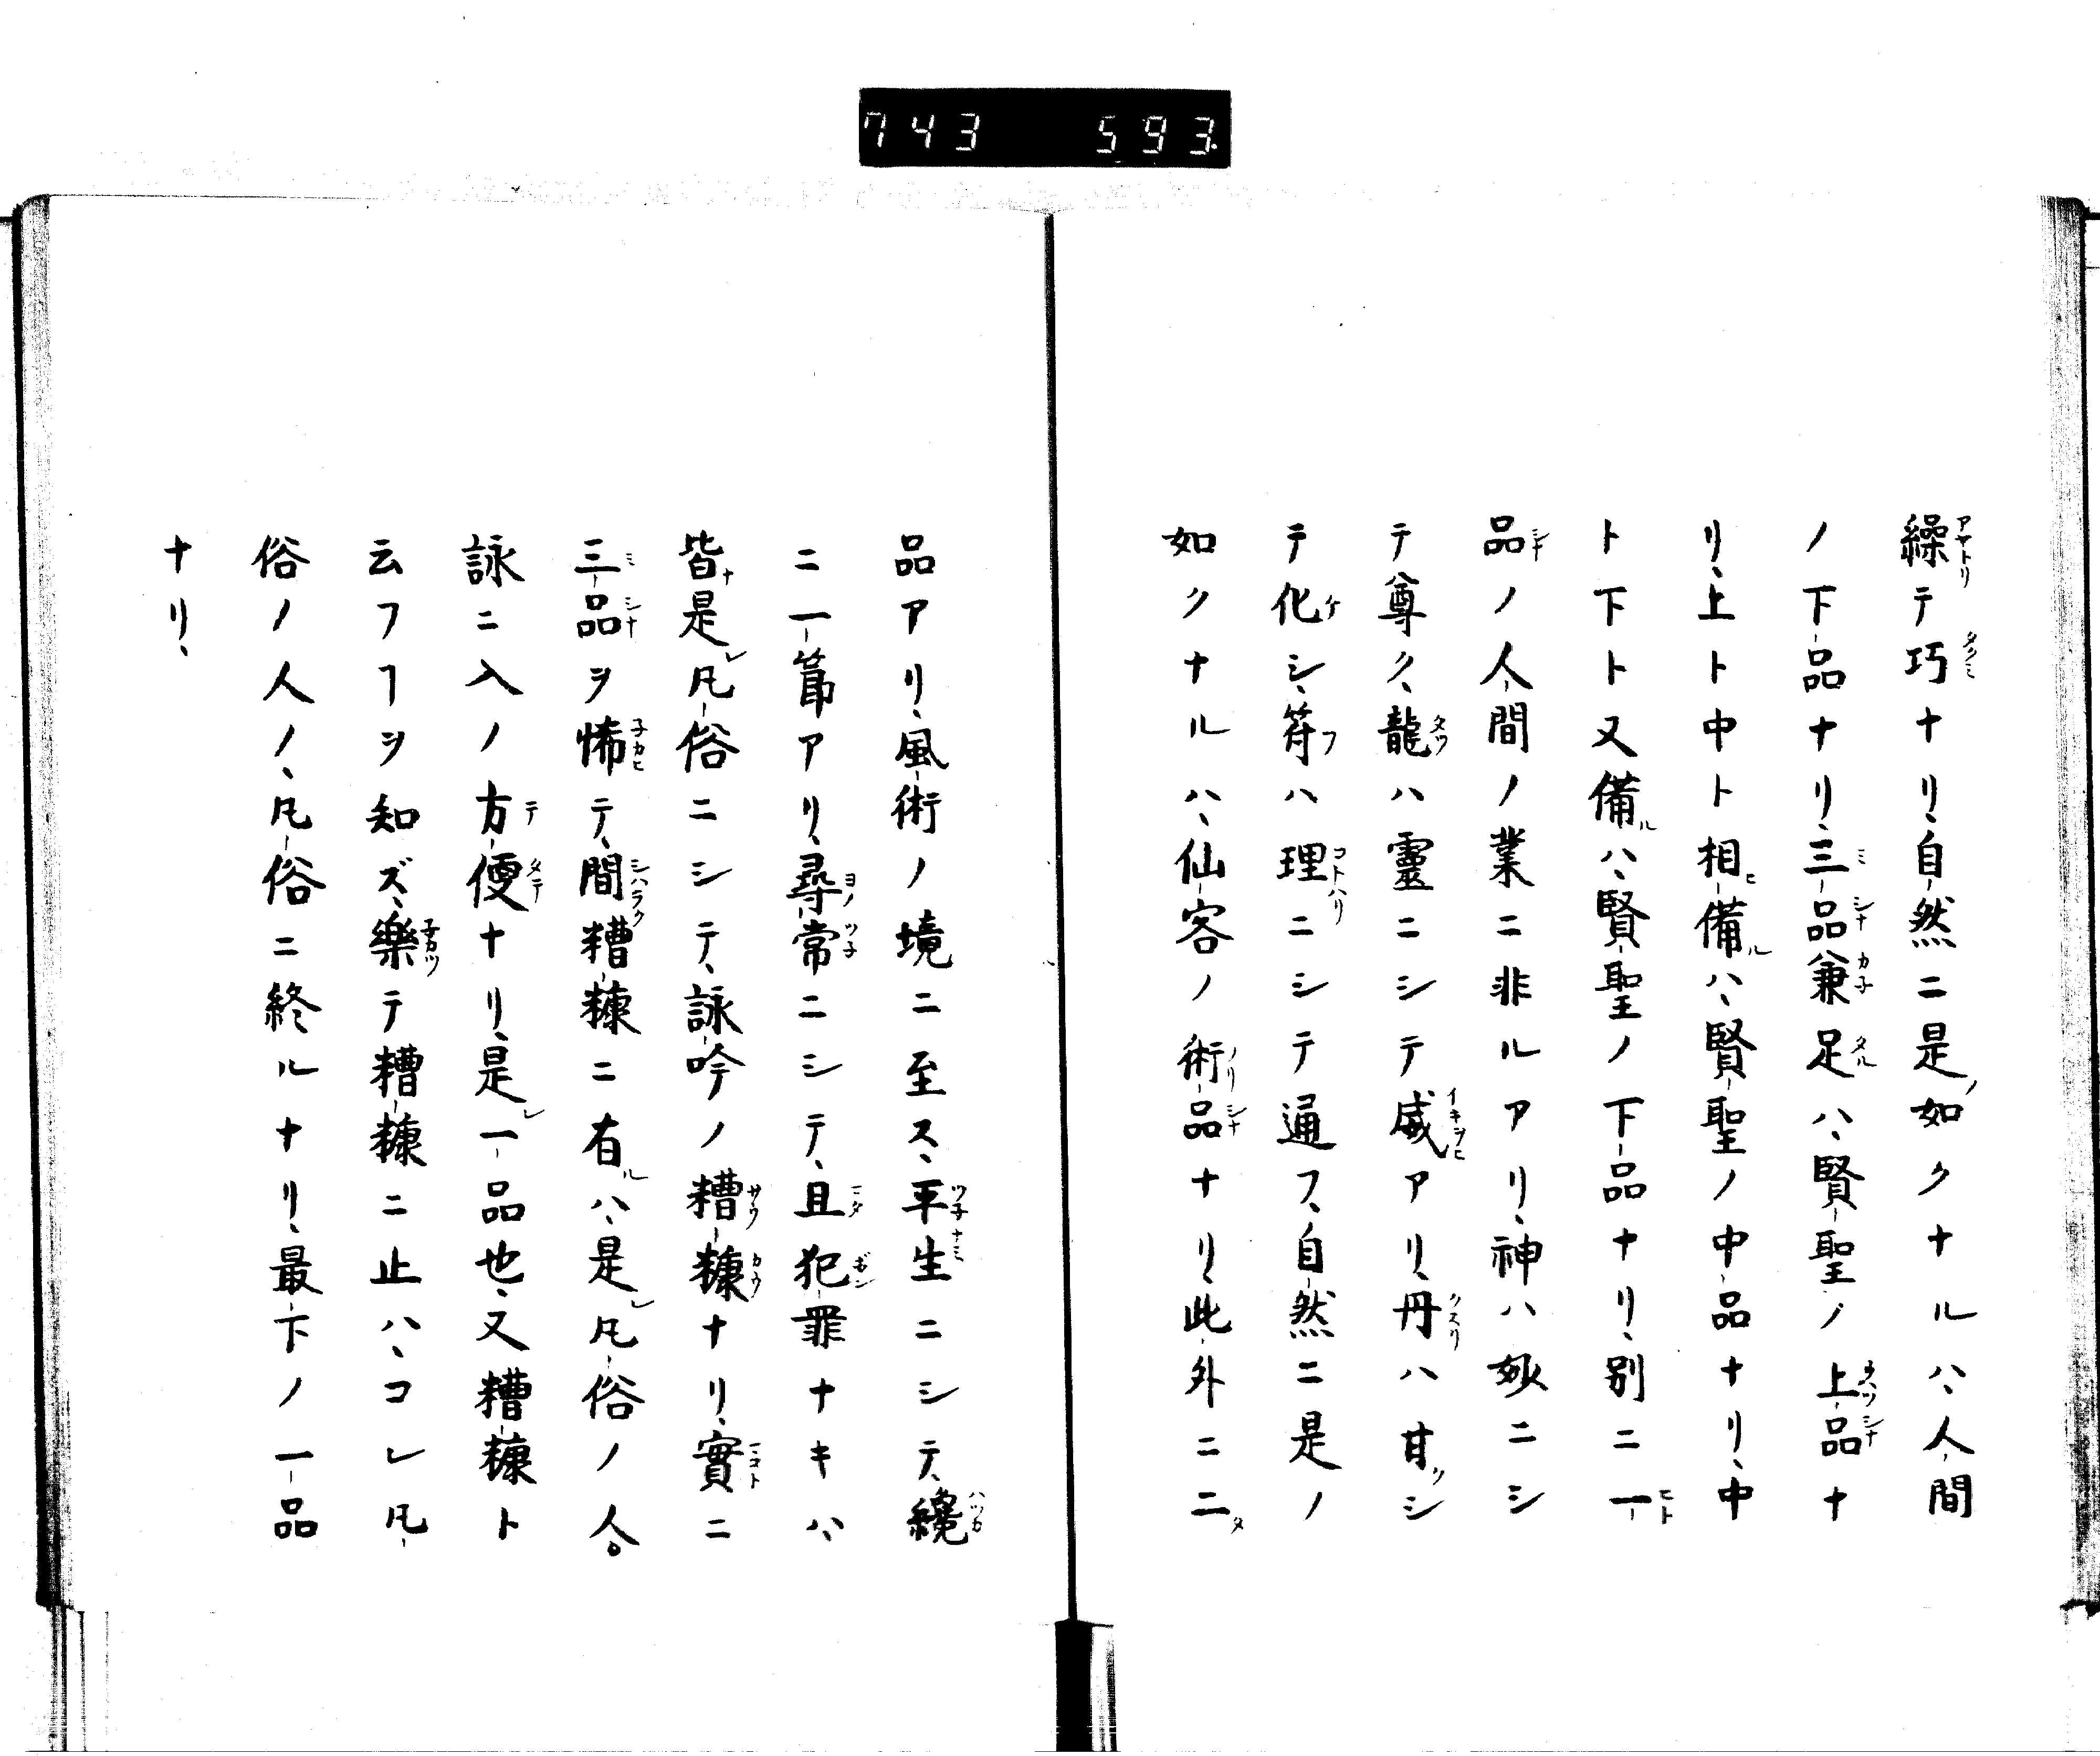 743 593
繰テ巧ナリ、自然ニ是如クナルハ、人間
ノ下品ナリ、三品兼足ハ、賢聖ノ上品ナ
リ、上ト中ト相備ハ、賢聖ノ中品ナリ、中
ト下ト又備ハ、賢聖ノ下品ナリ、別ニ一
品ノ人間ノ業ニ非ルアリ、神ハ妙ニシ
テ尊ク、龍ハ靈ニシテ威アリ、丹ハ甘シ
テ化シ、符ハ理ニシテ通フ、自然ニ是ノ
如クナルハ、仙客ノ術品ナリ、此外ニ二
品アリ、風術ノ境ニ至ス、平生ニシテ、纔
ニ一節アリ、尋常ニシテ、且犯罪ナキハ、
皆是凡俗ニシテ、詠吟ノ糟糠ナリ、實ニ
三品ヲ悕テ、間糟糠ニ有ハ、是凡俗ノ人。
詠ニ入ノ方便ナリ、是一品也、又糟糠ト
云フヿヲ知ズ、樂テ糟糠ニ止ハ、コレ凡
俗ノ人ノ、凡俗ニ終ルナリ、最下ノ一品
ナリ、